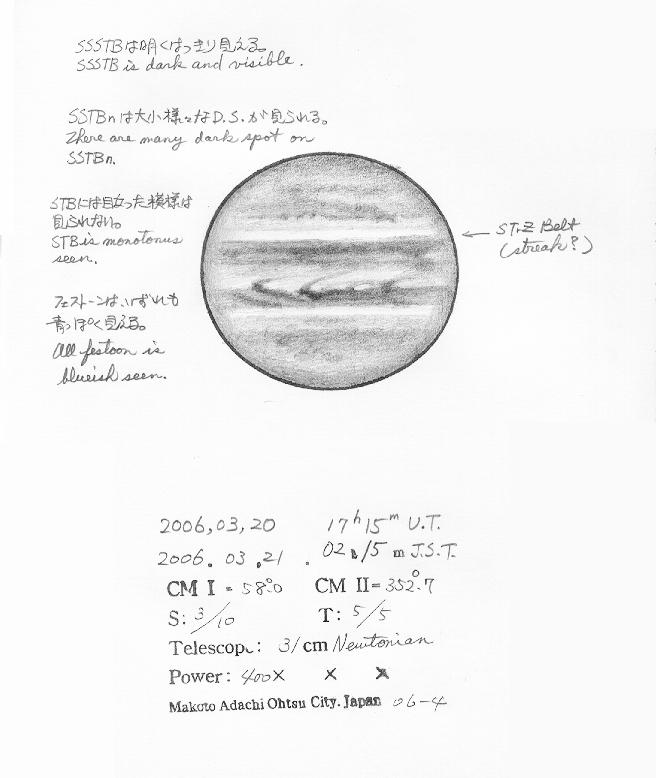 SSSTBは暗くはっきり見える。
SSSTB is dark and visible.
SSTBnは大小様々なD.S.が見られる。
There are many dark spot on
SSTBn.
STBには目立った模様は
見られない。
STB is monotonus
seen.
STrZ Belt
(streak?)
フェストーンは、いずれも
青っぽく見える。
All festoon is
blueish seen.
2006,03,20 17h 15m U.T.
2006.03.21. 02h 15m J.S.T.
CM I = 58°.0 CM II = 352°.7
S: 3/10 T: 5/5
Telescope: 31cm Newtonian
Power: 400× × ×
Makoto Adachi Ohtsu City. Japan 06-4